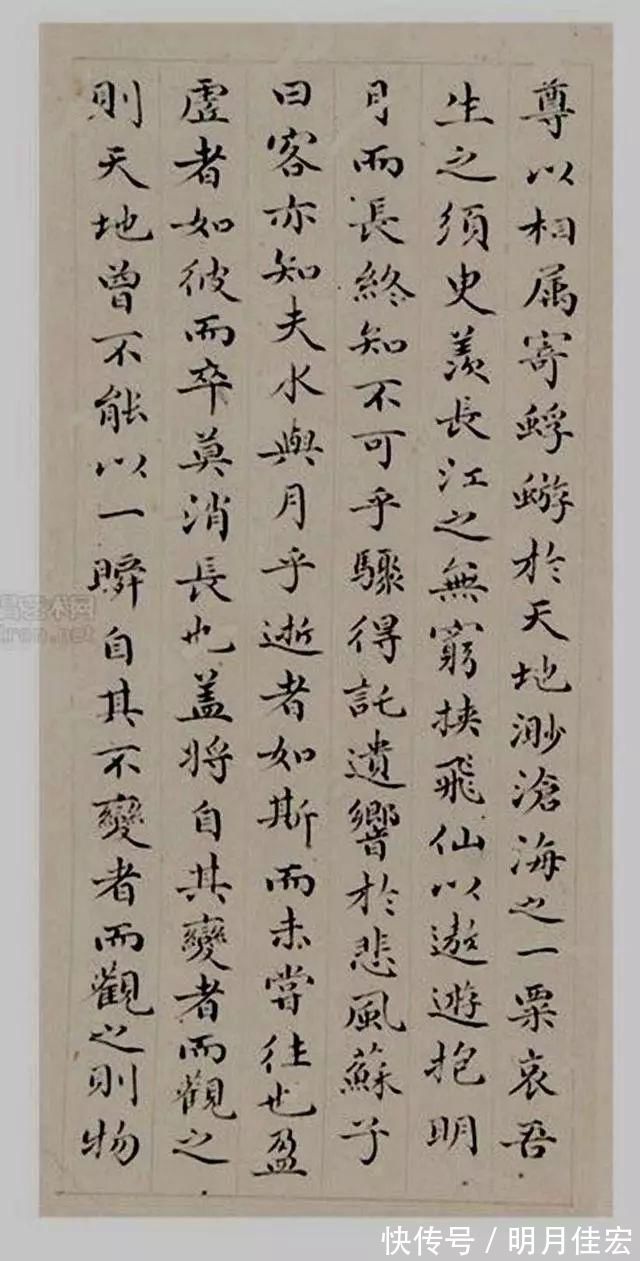 尊以相属寄蜉蝣於天地渺滄海之一粟哀吾
生之須臾羨長江之無窮挟飛仙以遨遊抱明
月而長終知不可乎驟得託遺響於悲風蘇子
曰客亦知夫水與月乎逝者如斯而未嘗往也盈
虛者如彼而卒莫消長也盖将自其變者而觀之
則天地曾不能以一瞬自其不變者而觀之則物
快传号/明月佳宏